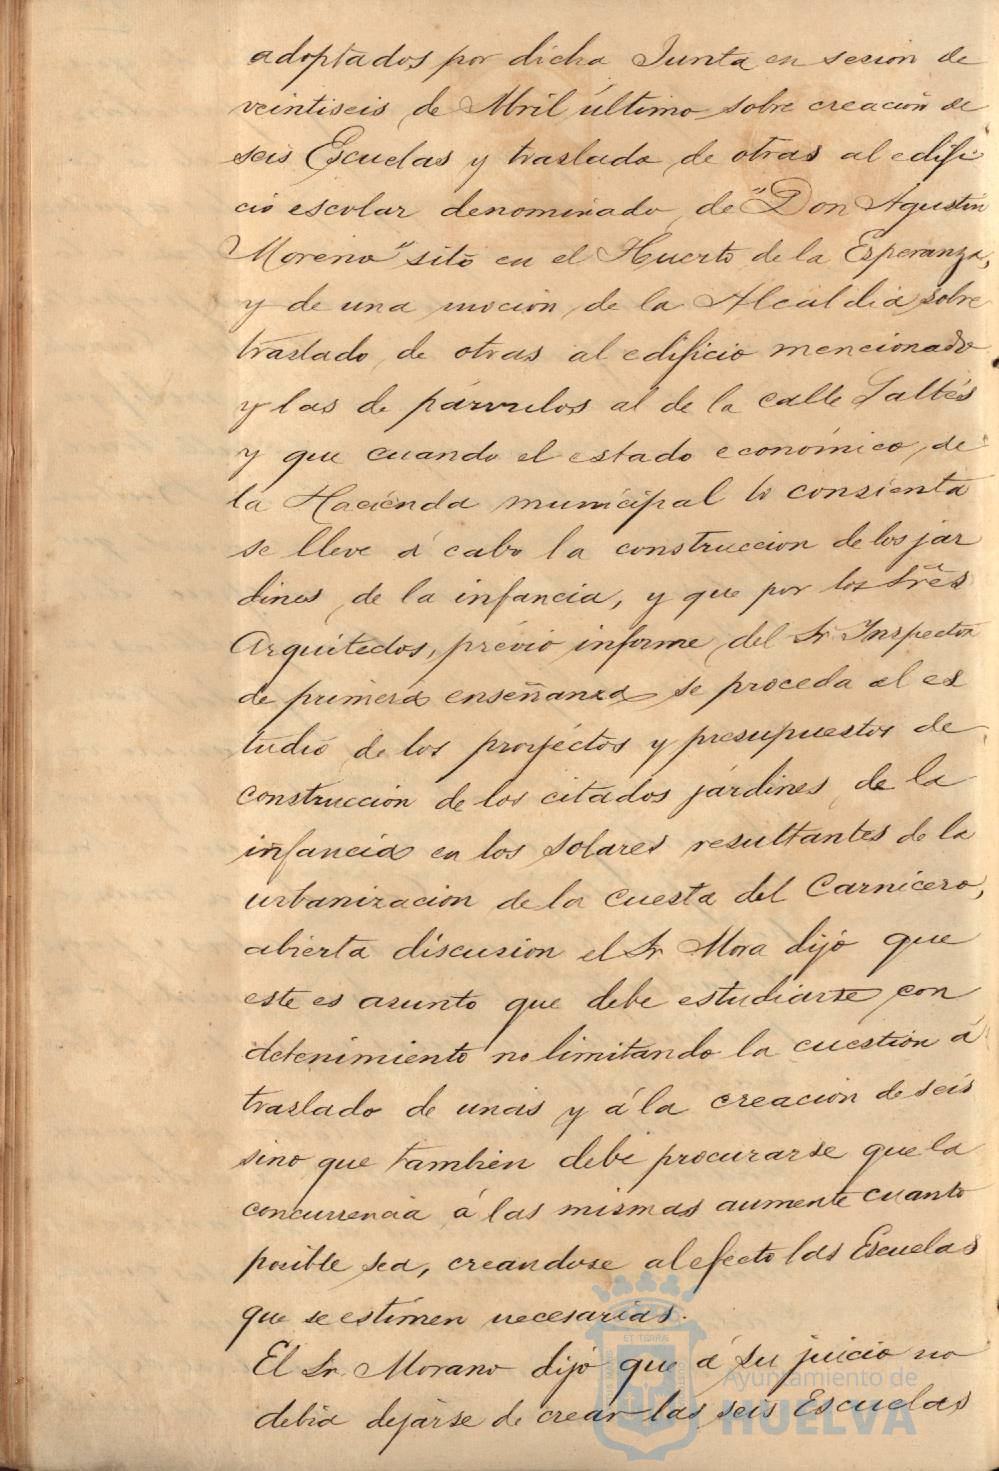 adoptados por dicha Junta en sesion de
veintiseis de Abril último sobre creación de
seis Escuelas y traslado de otras al edifi
cio escolar denominado de "Don Agustin
Moreno" sito en el Huerto de la Esperanza,
y de una moción de la Alcaldia sobre
traslado de otras al edificio mencionado
y las de párvulos al de la calle Saltés
y que cuando el estado económico de
la Haciénda municipal lo consienta
se lleve á cabo la construccion de los jar
dines de la infancia, y que por los Srēs
Arquitectos, prévio informe del Sr. Inspector
de primera enseñanza se proceda al es
tudio de los proyéctos y presupuestos de
construcción de los citados jardines de la
infancia en los solares resultantes de la
urbanizacion de la cuesta del Carnicero,
abierta discusion el Sr Mora dijo que
este es asunto que debe estudiarse con
detenimiento no limitando la cuestión á
traslado de unas y á la creación de seis
sino que tambien debe procurarse que la
concurrencia á las mismas aumente cuanto
posible sea, creandose al efecto las Escuelas
que se estimen necesarias.
El Sr. Morano dijo que á su juicio no
debia dejarse de crear las seis Escuelas
Ayuntamiento de
HUELVA